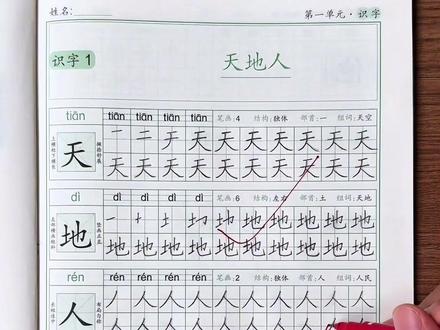 姓名:
第一单元·识字
识字1
天地人
tiān tiān tiān tiān tiān 笔画:4 结构:独体 部首:一 组词:天空
天 一 二 于 天 天 天 天 天 天 天
天 天 天 天 天 天 天 天 天 天
dì dì dì dì dì 笔画:6 结构:左右 部首:土 组词:天地
地 地 地 地 地 地 地 地
地 地 地 地 地 地 地 地 地 地
rén rén rén rén rén 笔画:2 结构:独体 部首:人 组词:人民
人 人 人 人 人 人 人 人 人 人